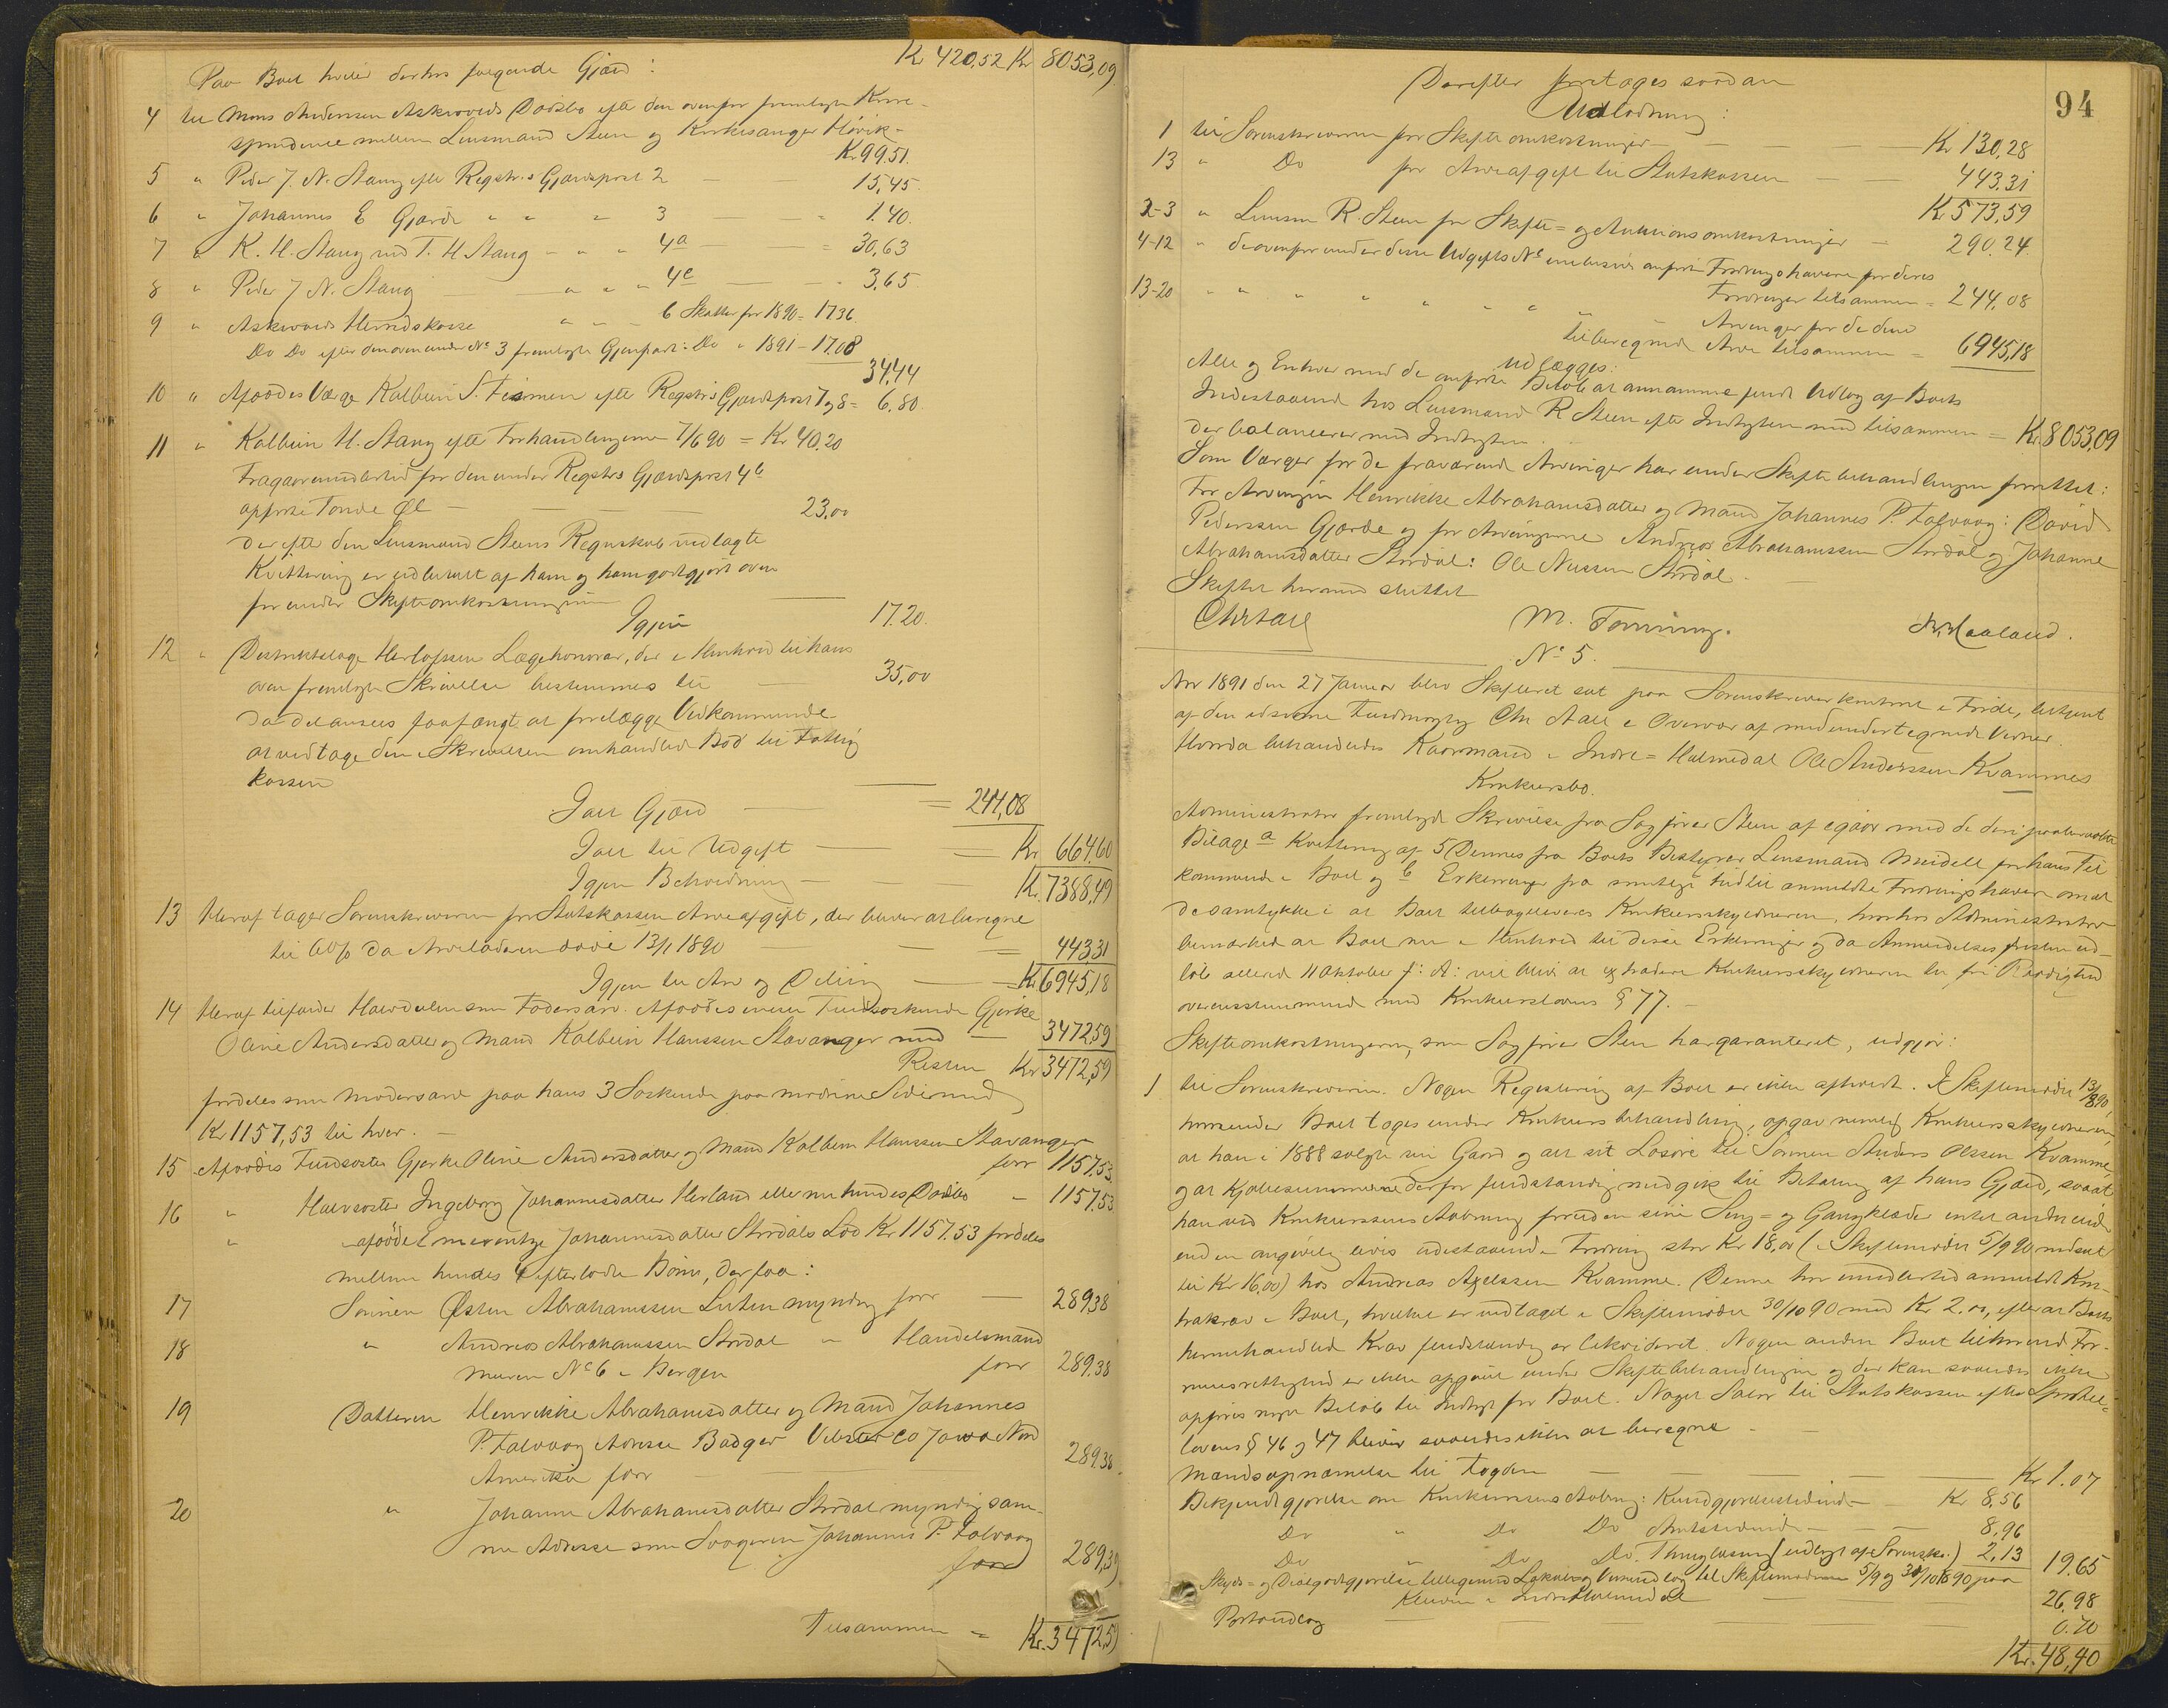 Kr 420,52 Kr 8053,09
Paa Boet hviler derhos følgende Gjæld:
4 til Mons Andersen Askvolds Dødsbo efter den ovenfor fremlagte Korre-
spondence mellem Lensmand Steen og Kirkesanger Høvik-
Kr 99.51.
5 " Peder J. N. Stang efter Registr.s Gjældspost 2 — 15,45.
6 " Johannes E Gjærde " " " 3 — 1.40.
7 " K. H. Stang ved T. H Stang " " " 4a — = 30,63
8 " Peder J N. Stang " " " 4c — 3,65
9 " Askvolds Herredskasse " " 6 Skatter for 1890 = 17.36
Do Do efter den oven under No 3 fremlagte Gjenpart: Do " 1891 - 17.08
34,44
10 " Afdødes Værge Kolbein S. efter Registr.s Gjældspost 7 og 8 = 6,80.
11 " Kolbein H. Stang efter Forhandlingerne 7/6 90 = Kr 40.20
Fragaar imidlertid for den under Registr.s Gjældspost 4b
opførte Tønde Øl — 23,00
der efter den Lensmand Steens Regnskab vedlagte
Kvittering er udbetalt af ham og ham godtgjort oven
for under Skifteomkostningerne
Igjen — 17.20.
12 " Distriktslæge Herlofssen Lægehonorar, der i Henhold til hans
oven fremlagte Skrivelse bestemmes til — 35,00
da det ansees forfængt at forelægge Vedkommende
at vedtage den i Skrivelsen omhandlede Bod til Fattig
kassen
Ialt Gjæld — = 244,08
Ialt til Udgift — = Kr 664,60
Igjen Beholdning — Kr. 7388,49
13 Heraf tager Sorenskriveren for Statskassen Arveafgift, der bliver at beregne
til 6 o/o da Arveladeren døde 13/1 1890 — = 443,31
Igjen til Arv og Deling — = Kr 6945,18
14 Heraf tilfalder Halvdelen som Fædrearv Afdødes eneste Fuldsøskende Gjerke
Oline Andersdatter og Mand Kolbein Hanssen Stavanger med — 3472,59
Resten Kr 3472,59
fordeles som Mødrearv paa hans 3 Søskende paa mødrene Side med
Kr 1157,53 til hver. —
15 Afdødes Fuldsøster Gjerke Oline Andersdatter og Mand Kolbein Hanssen Stavanger
faar 1157.53.
16 " Halvsøster Ingeborg Johannesdatter Herland eller nu hendes Dødsbo — 1157.53
" afdøde Johannesdatter Stordals Lod Kr 1157.53 fordeles
mellem hendes 4 efterladte Børn, der faa:
17 Sønnen Østen Abrahamssen myndig faar — 289,38
18 " Andreas Abrahamssen Stordal " Handelsmand
Muren No 6 i Bergen faar 289.38
19 Datteren Henrikke Abrahamsdatter og Mand Johannes
P. Talvaag Adresse Badger Vebster Co Jowa Nord
Amerika faar — 289.38.
20 " Johanne Abrahamsdatter Stordal myndig sam-
me Adresse som Svogeren Johannes P. Talvaag
faar 289,39
Tilsammen = Kr. 3472,59
94
Derefter foretages saadan
Udlodning:
1 til Sorenskriveren for Skifteomkostninger — Kr 130,28
13 " Do for Arveafgift til Statskassen — 443.31
Kr 573,59
2-3 " Lensm R. Steen for Skifte- og Auktionsomkostninger — 290.24.
4-12 " de ovenfor under disse Udgifts No inclusive anførte Fordringshavere for deres
Fordringer tilsammen = 244,08
13-20 " " " " " " " Arvinger for de dem
tilberegnede Arve tilsammen = 6945,18
udlægges:
Alle og Enhver med de anførte Beløb at annamme fuldt Udlæg af Boets
Indestaaende hos Lensmand R Steen efter Indtægten med tilsammen = Kr. 8053,09
der balancerer med Indtægten. —
Som Værger for de fraværende Arvinger har under Skiftebehandlingen forrettet:
For Arvingen Henrikke Abrahamsdatter og Mand Johannes P. Talvaag: David
Pederssen Gjærde og for Arvingerne Andreas Abrahamssen Stordal og Johanne
Abrahamsdatter Stordal: Ole Nilssen Stordal. —
Skiftet hermed sluttet
Chr Aall M. Tonning. Haaland.
No 5.
Aar 1891 den 27 Januar blev Skifteret sat paa Sorenskriverkontoret i Førde, betjent
af den edsvorne Fuldmægtig Chr Aall i Overvær af medundertegnede Vidner.
Hvorda behandledes Kaarmand i Indre-Holmedal Ole Anderssen Kvammes
Konkursbo.
Administrator fremlagde Skrivelse fra Sagfører Steen af igaar med de deri paaberaabte
Bilage a Kvittering af 5 Dennes fra Boets Bestyrer Lensmand Meidell for hans Til
kommende i Boet og b Erklæringer fra samtlige hidtil anmeldte Fordringshavere om at
de samtykke i at Boet tilbageleveres Konkursskyldneren, hvorhos Administrator
bemærkede at Boet nu i Henhold til disse Erklæringer og da Anmeldelsesfristen ud-
løb allerede 11 Oktober f: A: vil blive at extradere Konkursskyldneren til fri Raadighed
overensstemmende med Konkurslovens § 77. —
Skifteomkostningerne, som Sagfører Steen har garanteret, udgjør:
1 til Sorenskriveren. Nogen Registrering af Boet er ikke afholdt. I Skiftemødet 13/8 90,
hvorunder Boet toges under Konkursbehandling, opgav nemlig Konkursskyldneren,
at han i 1888 solgte sin Gaard og alt sit Løsøre til Sønnen Anders Olssen Kvamme,
og at Kjøbesummerne derfor fuldstændig medgik til Betaling af hans Gjæld, saa at
han ved Konkurssens Aabning foruden sine Seng- og Gangklæder intet andet eied
end en angivelig udestaaende Fordring stor Kr 18,00 (i Skiftemødet 5/9 90 nedsat
til Kr 16,00) hos Andreas Axelssen Kvamme. Denne har imidlertid anmeldt Kon-
trakrav i Boet, hvilket er vedtaget i Skiftemødet 30/10 90 med Kr 2.00, efter at Boets
heromhandlede Krav fuldstændig er likvideret. Nogen anden Boet tilhørende For-
muesrettighed er ikke opgivet under Skiftebehandlingen og der kan saaledes ikke
opføres noget Beløb til Indtægt for Boet. Noget Salær til Statskassen efter Sportel-
lovens § 46 og 47 bliver saaledes ikke at beregne. —
Mandsopnævnelse til Logden — Kr 1.07
Bekjendtgjørelse om Konkurssens Aabning: Kundgjørelsestidende — Kr 8,56
Do " Do Do Amtstidende — 8,96
Do " Do Do. Thinglæsning (udlagt af Sorenskr.) 2,13 19,65
Skyds- og Diætgodtgjørelse tilligemed Lokale og Vidneudlæg til Skiftemøderne 5/9 og 30/10 1890 paa
i Indre Holmedal — 26,98
Portoudlæg — 0.70
Kr. 48,40